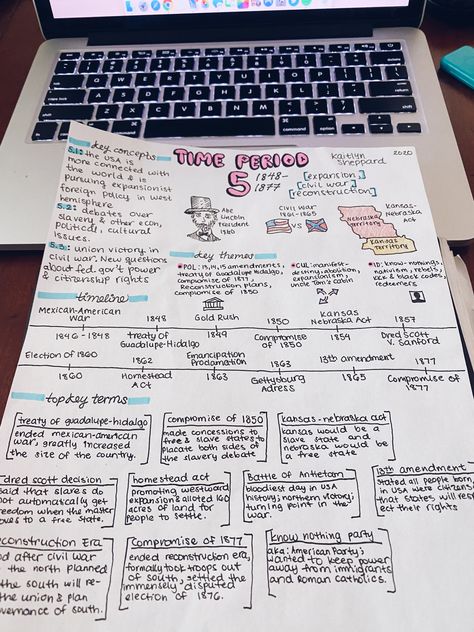 key concepts
5.1: the USA is
more connected with
the world & is
pursuing expansionist
foreign policy in west
hemisphere
5.2: debates over
slavery & other econ,
political, cultural
issues.
5.3: union victory in
civil war. New questions
about fed. gov't power
& citizenship rights
TIME PERIOD
5
1848-
1877
[expansion]
[civil war]
[reconstruction]
Kaitlyn
Sheppard
2020
Abe
Lincoln
President
1860
CIVIL WAR
1861-1865
VS
Nebraska
Territory
Kansas
Territory
Kansas-
Nebraska
Act
key themes
POL: 13,14,15 amendments,
treaty of Guadalupe Hidalgo,
compromise of 1877,
Reconstruction plans,
compromise of 1850
CUL: manifest-
destiny, abolition,
expansionism,
uncle Tom's Cabin
ID: know-nothings,
nativism, rebels,
KKK & black codes,
redeemers
timeline
Mexican-American
War
1846-1848
1848
treaty of
Guadalupe-Hidalgo
Gold Rush
1849
1850
Compromise
of 1850
Kansas
Nebraska Act
1854
1857
Dred Scott
V. Sanford
Election of 1860
1860
1862
Homestead
Act
Emancipation
Proclamation
1863
1863
Gettysburg
Adress
13th amendment
1865
1877
Compromise of
1877
top key terms
treaty of guadalupe-hidalgo
ended mexican-american
war, greatly increased
the size of the country.
compromise of 1850
made concessions to
free & slave states to
placate both sides of
the slavery debate
kansas-nebraska act
kansas would be a
slave state and
nebraska would be
a free state
dred scott decision
said that slaves do
not automatically get
freedom when the master
moves to a free state.
homestead act
promoting westward
expansion & alloted 160
acres of land for
people to settle.
Battle of Antietam
bloodiest day in USA
history; northern victory;
turning point in the
war.
13th amendment
stated all people born
in USA were citizens
that states will res-
pect their rights
Reconstruction Era
after civil war
the north planned
the south will re-
the union & plan
governance of south.
Compromise of 1877
ended reconstruction era,
formally took troops out
of south, settled the
immensely disputed
election of 1876.
know nothing party
aka: American Party;
wanted to keep power
away from immigrants
and Roman Catholics.